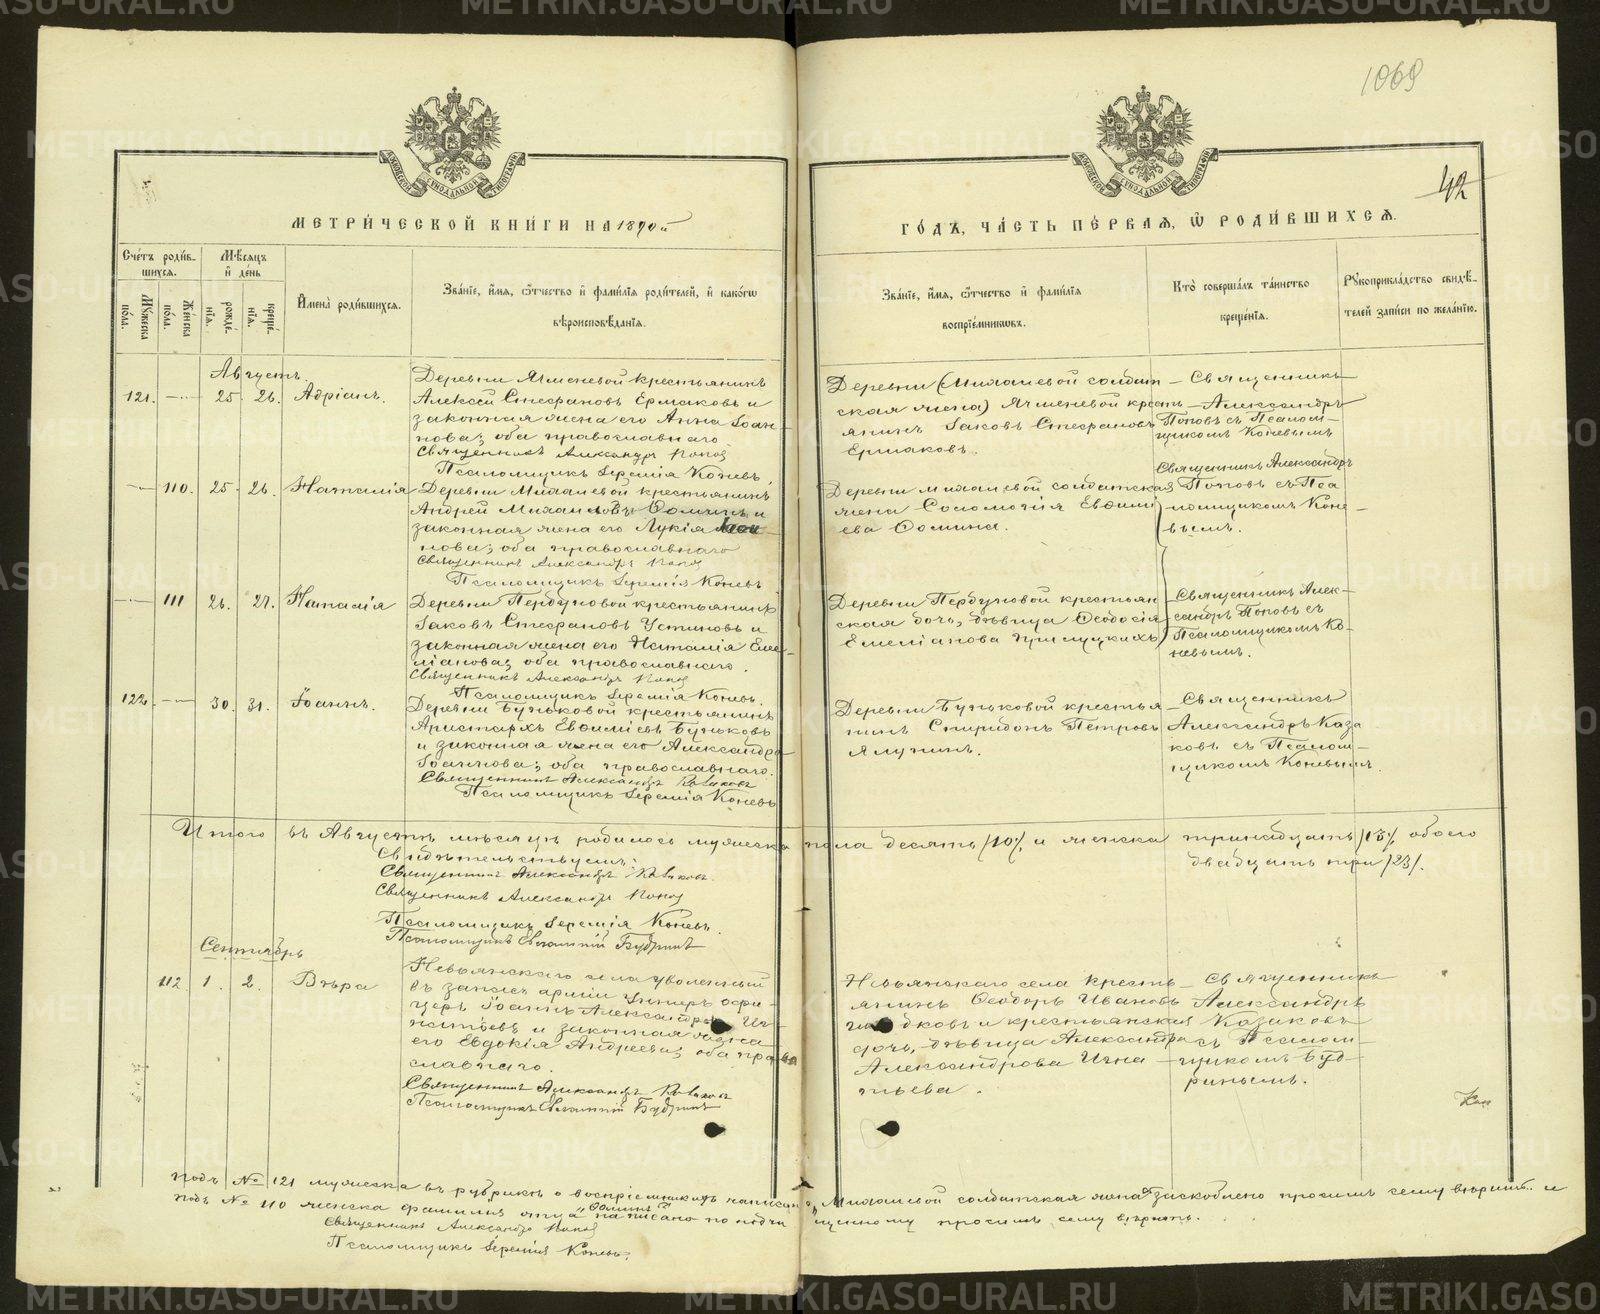 1069
42
МЕТРИ́ЧЕСКОЙ КНИ́ГИ НА 1890й
ГО́ДЪ, ЧА́СТЬ ПЕ́РВАЯ, Ѡ РОДИ́ВШИХСЯ.
Сче́тъ роди́вшихся.
Мѣ́сяцъ и́ де́нь
Му́жеска по́ла.
Же́нска по́ла.
рожде́нїя.
креще́нїя.
И҆мена̀ роди́вшихся.
Зва́нїе, и҆́мя, ѻ҆́тчество и҆ фами́лїя роди́телей, и҆ како́гѡ
вѣроисповѣ́данїя.
Зва́нїе, и҆́мя, ѻ҆́тчество и҆ фами́лїя
воспрїе́мникѡвъ.
Кто̀ соверша́лъ та́инство
креще́нїя.
Рꙋкоприкла́дство свидѣ́-
телей за́писи по жела́нїю.
Августъ.
121. — 25 26. Адріанъ.
Деревни Ячменевой крестьянинъ
Алексѣй Стефановъ Ермаковъ и
законная жена его Анна Іоан-
нова; оба православнаго
Священникъ Александръ Поповъ
Псаломщикъ Іеремія Коневъ
Деревни (Милашевой солдат-
ская жена) Ячменевой кресть-
янинъ Іаковъ Стефановъ
Ермаковъ.
Священникъ
Александръ
Поповъ съ Псалом-
щикомъ Коневымъ
— 110. 25. 26. Наталія
Деревни Милашевой крестьянинъ
Андрей Ѳоминъ и
законная жена его Лукія
нова; оба православнаго
Священникъ Александръ Поповъ
Псаломщикъ Іеремія Коневъ
Деревни Милашевой солдатская
жена Соломонія Евѳимі-
ева Ѳомина.
Священникъ Александръ
Поповъ съ Пса-
ломщикомъ Коне-
вымъ.
— 111 26. 27. Наталія
крестьянинъ
Іаковъ Стефановъ Устиновъ и
законная жена его Наталія Еме-
ліанова; оба православнаго.
Священникъ Александръ Поповъ
Псаломщикъ Іеремія Коневъ.
крестьян-
ская дочь, дѣвица Ѳеодосія
Емеліанова
Священникъ Алек-
сандръ Поповъ съ
Псаломщикомъ Ко-
невымъ.
122. — 30. 31. Іоаннъ.
Деревни Буньковой крестьянинъ
Аристархъ Евѳиміевъ Буньковъ
и законная жена его Александра
Іоаннова; оба православнаго.
Священникъ Александръ Казаковъ
Псаломщикъ Іеремія Коневъ
Деревни Буньковой крестья-
нинъ Спиридонъ Петровъ
Ялунинъ.
Священникъ
Александръ Каза-
ковъ съ Псалом-
щикомъ Коневымъ.
Итого въ Августѣ мѣсяцѣ родилось мужеска пола десять /10/, и женска тринадцать /13/, обоего
двадцать три /23/.
Свидѣтельствуемъ:
Священникъ Александръ Казаковъ.
Священникъ Александръ Поповъ
Псаломщикъ Іеремія Коневъ.
Псаломщикъ Евгеній Будринъ
Сентябрь
112 1. 2. Вѣра
Невьянскаго села уволенный
въ запасъ арміи Унтеръ офи-
церъ Іоаннъ Александровъ Иг-
натьевъ и законная жена
его Евдокія Андреева; оба право-
славнаго.
Священникъ Александръ Казаковъ
Псаломщикъ Евгеній Будринъ
Невьянскаго села кресть-
янинъ Ѳеодоръ Ивановъ
и крестьянская
дочь, дѣвица Александра
Александрова Игна-
тьева.
Священникъ
Александръ
Казаковъ
съ Псалом-
щикомъ Буд-
ринымъ.
Подъ № 121 мужеска въ рубрикѣ о воспріемникахъ написано „Милашевой солдатская жена“ заскоблено просимъ сему вѣрить и
подъ № 110 женска фамилія отца „Ѳоминъ“ написано по подчи-
щенному просимъ сему вѣрить.
Священникъ Александръ Поповъ
Псаломщикъ Іеремія Коневъ.
METRIKI.GASO-URAL.RU